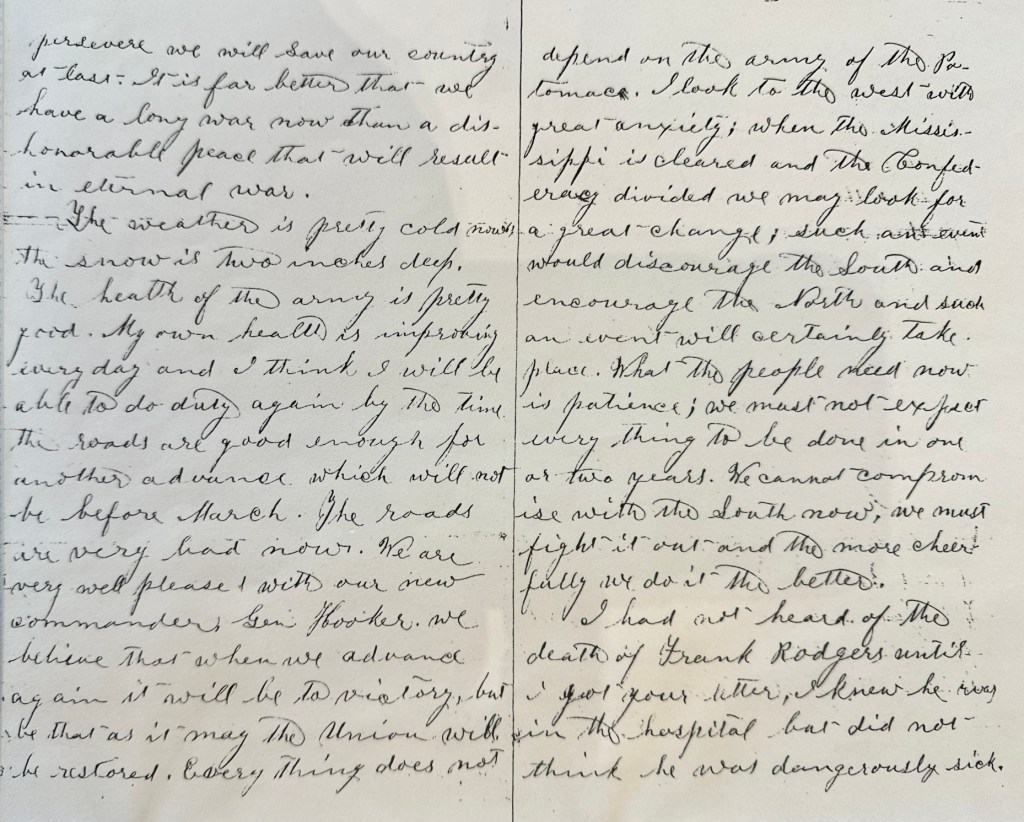 persevere we will save our country
at last. It is far better that we
have a long war now than a dis-
honorable peace that will result
in eternal war.
The weather is pretty cold now
the snow is two inches deep.
The health of the army is pretty
good. My own health is improving
every day and I think I will be
able to do duty again by the time
the roads are good enough for
another advance which will not
be before March. The roads
are very bad now. We are
very well pleased with our new
commander, Gen Hooker. we
believe that when we advance
again it will be to victory, but
be that as it may the Union will
be restored. Every thing does not
depend on the army of the Po-
tomac. I look to the west with
great anxiety; when the Missis-
sippi is cleared and the Confed-
eracy divided we may look for
a great change; such an event
would discourage the South and
encourage the North and such
an event will certainly take
place. What the people need now
is patience; we must not expect
every thing to be done in one
or two years. We cannot comprom
ise with the South now; we must
fight it out and the more cheer-
fully we do it the better.
I had not heard of the
death of Frank Rodgers until
i got your letter, I knew he was
in the hospital but did not
think he was dangerously sick.